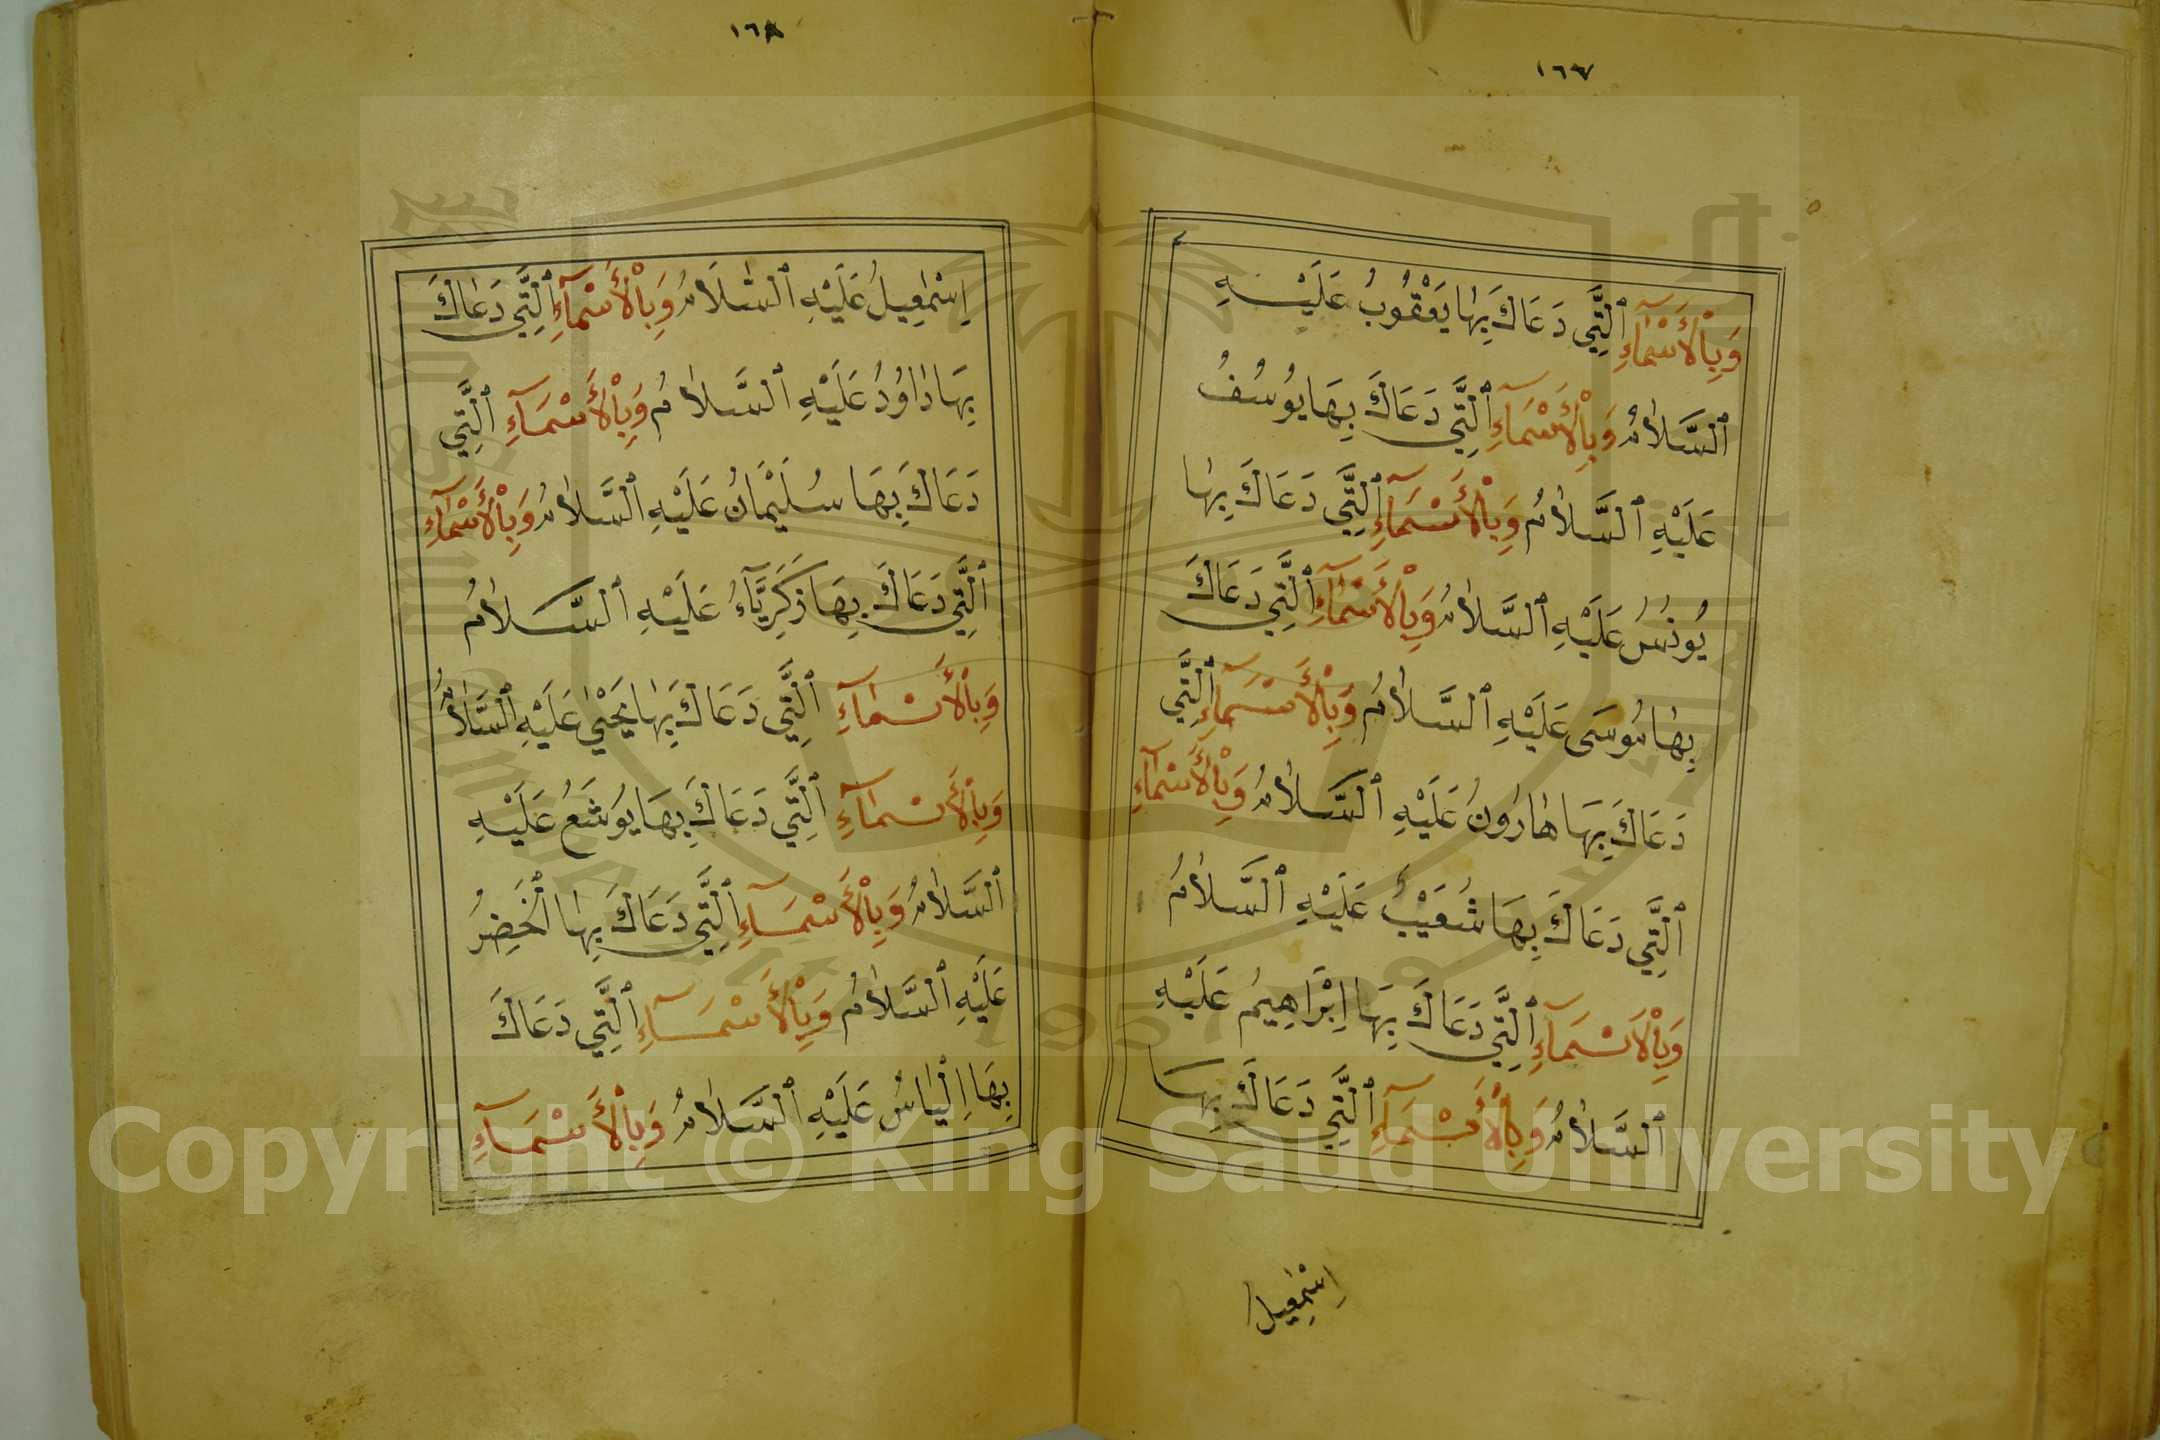 ١٦٧
وَبِالْأَسْمَآءِ ٱلَّتِي دَعَاكَ بِهَا يَعْقُوبُ عَلَيْهِ
ٱلسَّلَامُ وَبِالْأَسْمَآءِ ٱلَّتِي دَعَاكَ بِهَا يُوسُفُ
عَلَيْهِ ٱلسَّلَامُ وَبِالْأَسْمَآءِ ٱلَّتِي دَعَاكَ بِهَا
يُونُسُ عَلَيْهِ ٱلسَّلَامُ وَبِالْأَسْمَآءِ ٱلَّتِي دَعَاكَ
بِهَا مُوسَى عَلَيْهِ ٱلسَّلَامُ وَبِالْأَسْمَآءِ ٱلَّتِي
دَعَاكَ بِهَا هَارُونُ عَلَيْهِ ٱلسَّلَامُ وَبِالْأَسْمَآءِ
ٱلَّتِي دَعَاكَ بِهَا شُعَيْبُ عَلَيْهِ ٱلسَّلَامُ
وَبِالْأَسْمَآءِ ٱلَّتِي دَعَاكَ بِهَا اِبْرَاهِيمُ عَلَيْهِ
ٱلسَّلَامُ وَبِالْأَسْمَآءِ ٱلَّتِي دَعَاكَ بِهَا
اِسْمٰعِيلُ
١٦٨
اِسْمٰعِيلُ عَلَيْهِ ٱلسَّلَامُ وَبِالْأَسْمَآءِ ٱلَّتِي دَعَاكَ
بِهَا دَاوُدُ عَلَيْهِ ٱلسَّلَامُ وَبِالْأَسْمَآءِ ٱلَّتِي
دَعَاكَ بِهَا سُلَيْمَانُ عَلَيْهِ ٱلسَّلَامُ وَبِالْأَسْمَآءِ
ٱلَّتِي دَعَاكَ بِهَا زَكَرِيَّآءُ عَلَيْهِ ٱلسَّلَامُ
وَبِالْأَسْمَآءِ ٱلَّتِي دَعَاكَ بِهَا يَحْيٰى عَلَيْهِ ٱلسَّلَامُ
وَبِالْأَسْمَآءِ ٱلَّتِي دَعَاكَ بِهَا يُوشَعُ عَلَيْهِ
ٱلسَّلَامُ وَبِالْأَسْمَآءِ ٱلَّتِي دَعَاكَ بِهَا ٱلْخَضِرُ
عَلَيْهِ ٱلسَّلَامُ وَبِالْأَسْمَآءِ ٱلَّتِي دَعَاكَ
بِهَا اِلْيَاسُ عَلَيْهِ ٱلسَّلَامُ وَبِالْأَسْمَآءِ
Copyright © King Saud University
1957